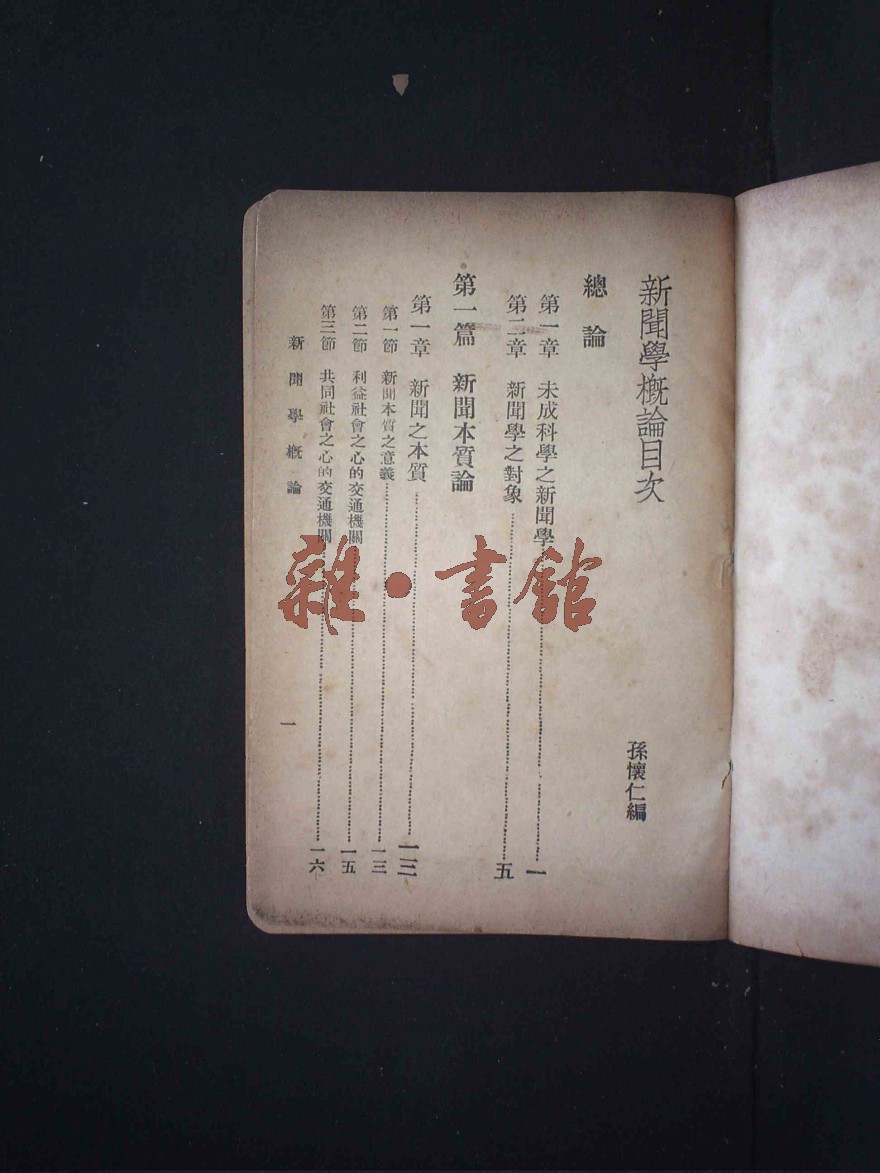 新聞學概論目次
孫懷仁編
總論
第一章 未成科學之新聞學 一
第二章 新聞學之對象 五
第一篇 新聞本質論
第一章 新聞之本質 一三
第一節 新聞本質之意義 一三
第二節 利益社會之心的交通機關 一五
第三節 共同社會之心的交通機關 一六
新聞學概論
一
雜·書館